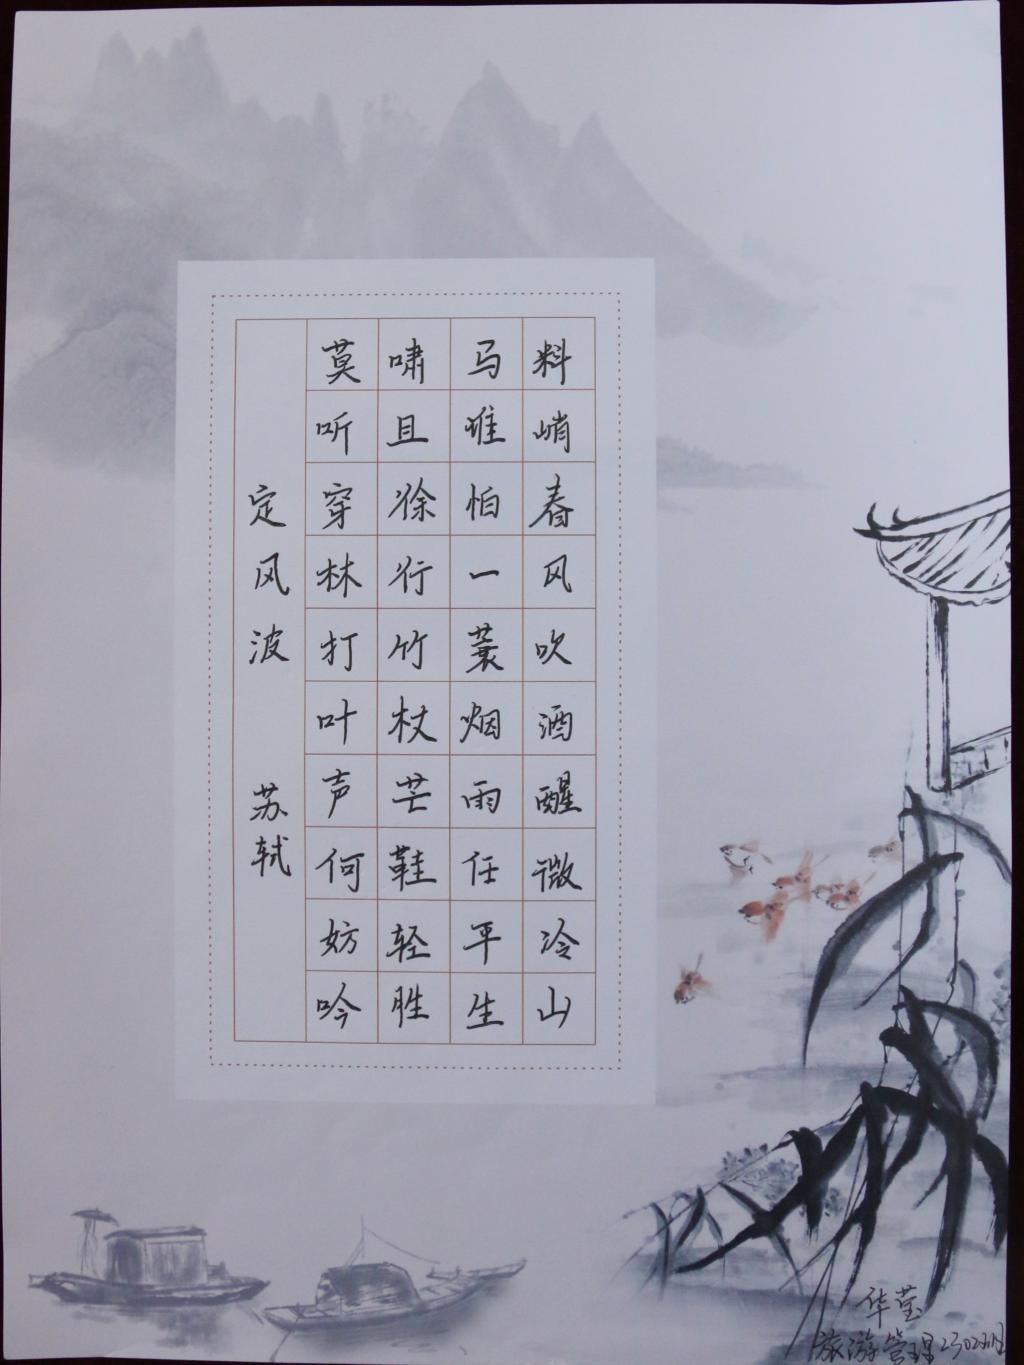 定风波 苏轼
莫听穿林打叶声何妨吟
啸且徐行竹杖芒鞋轻胜
马谁怕一蓑烟雨任平生
料峭春风吹酒醒微冷山
华莹
旅游管理2302班